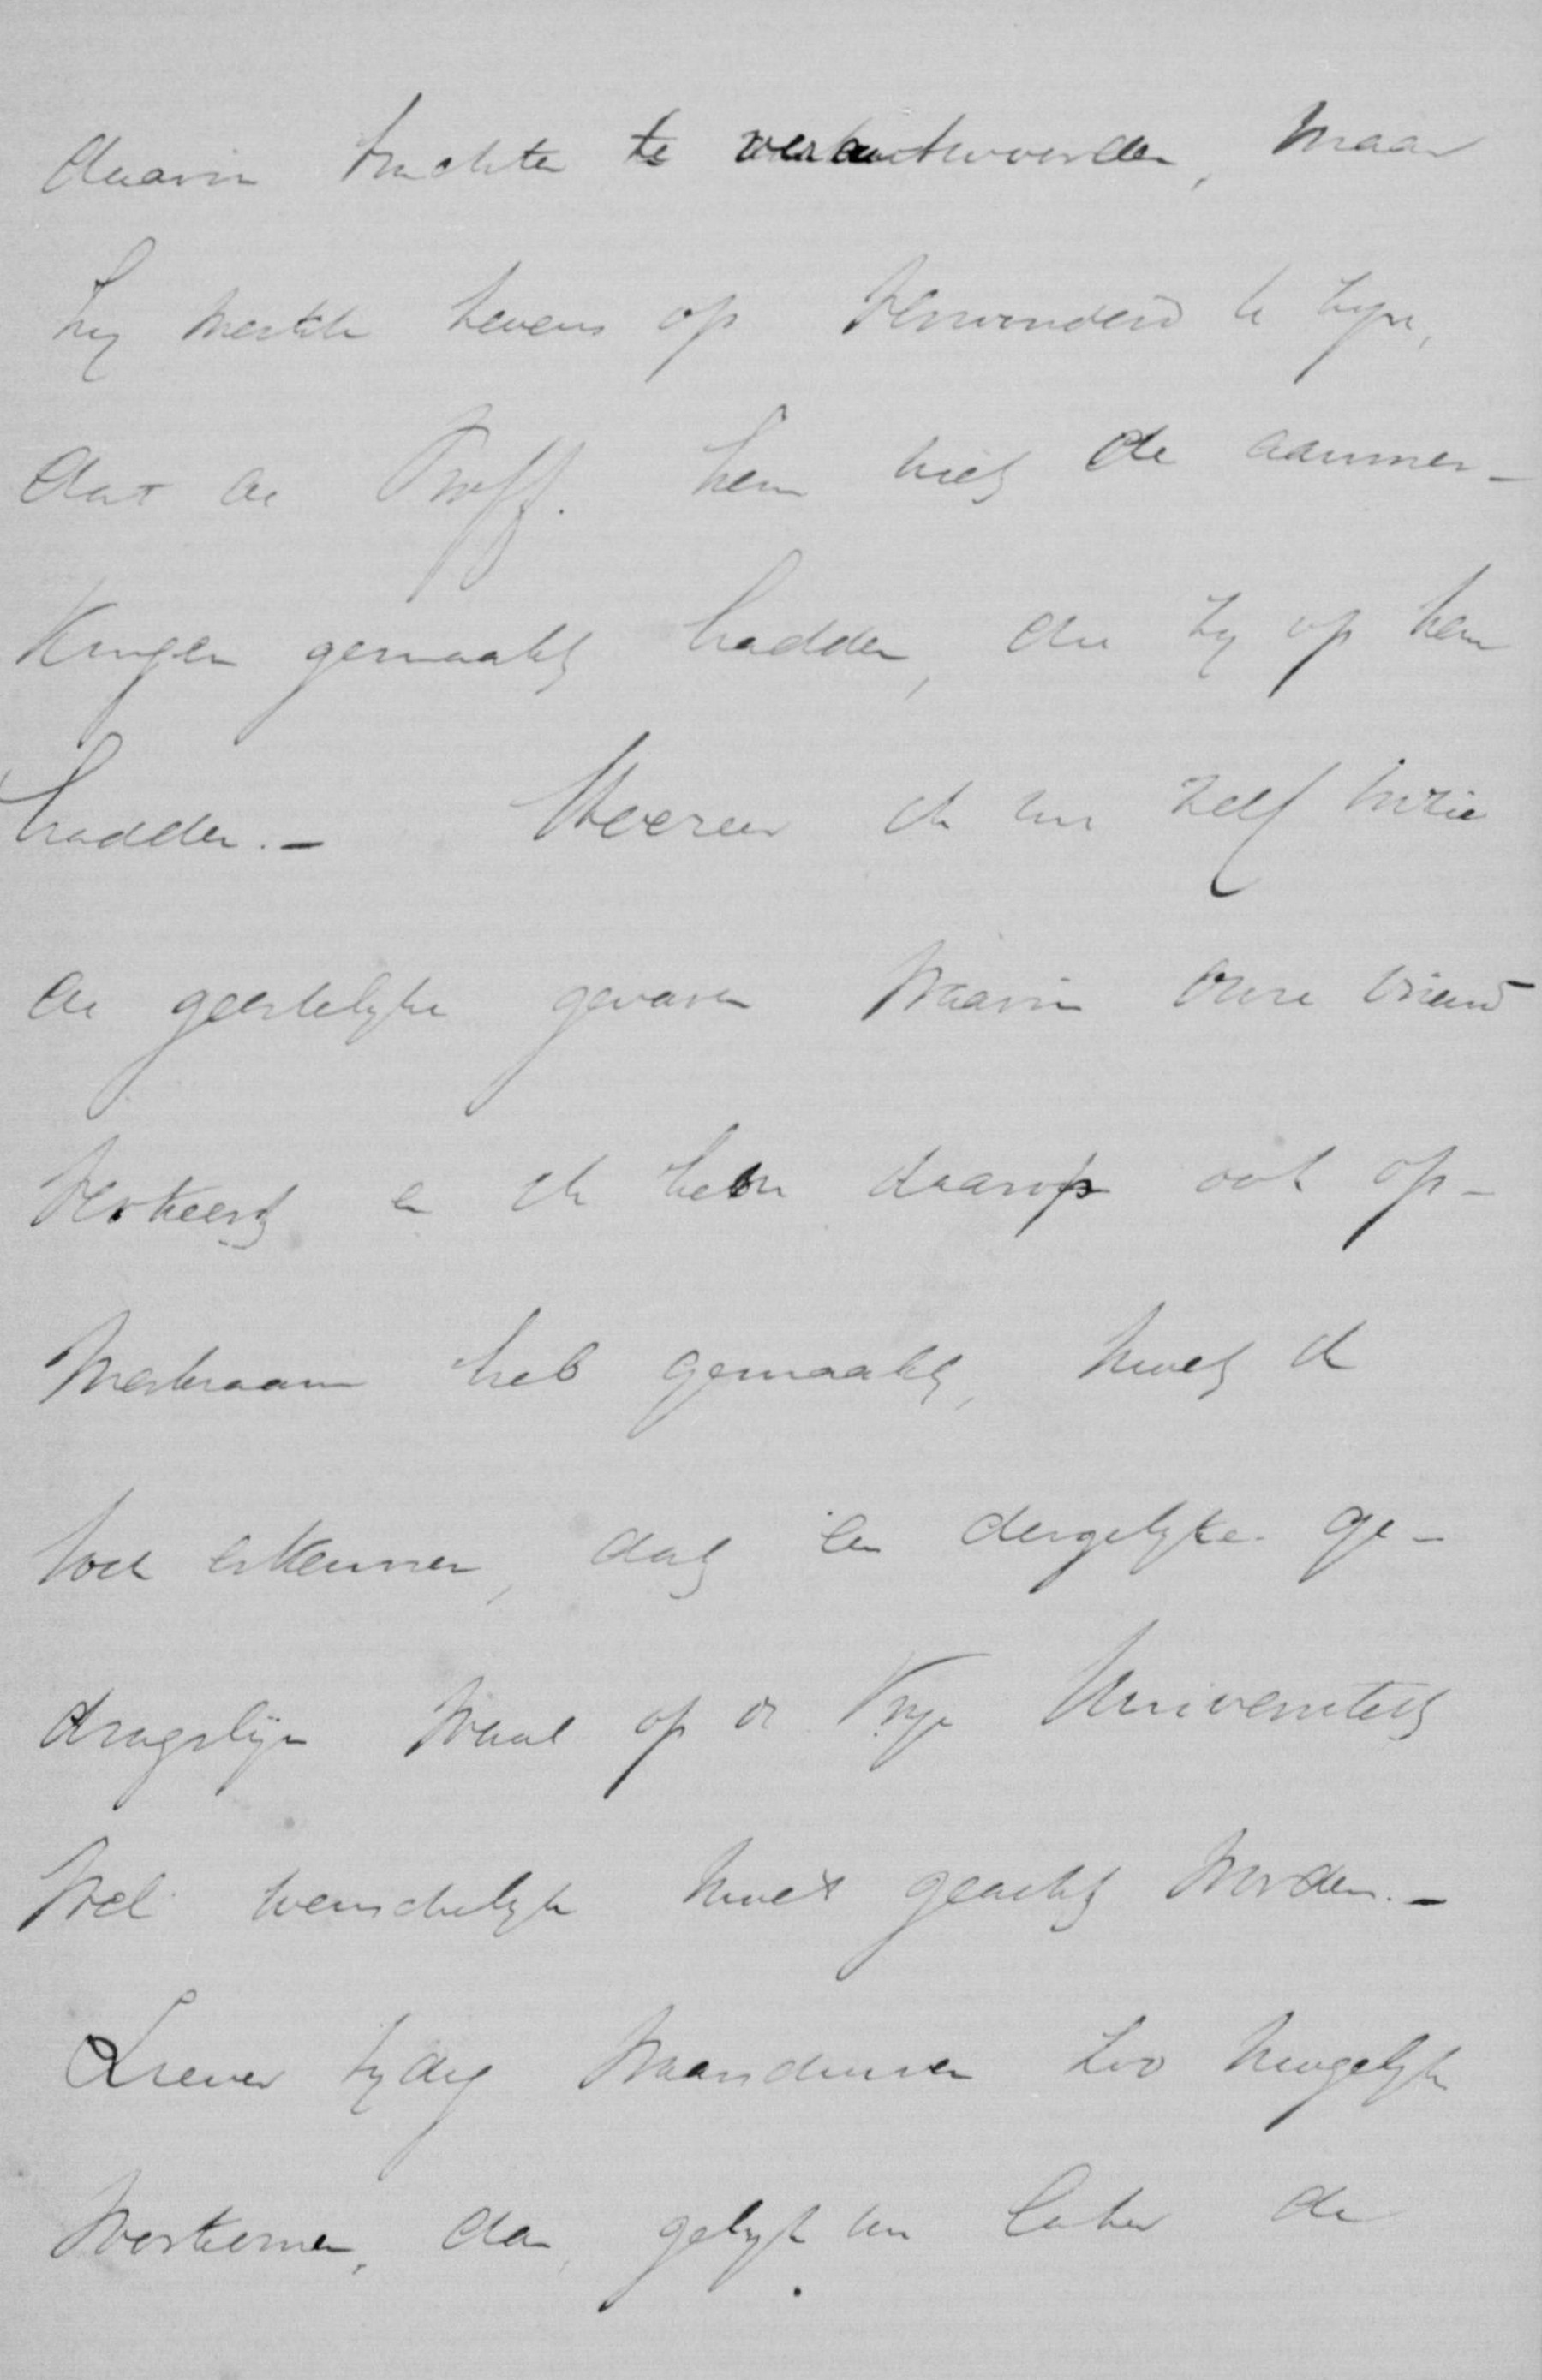 daarin trachten te verantwoorden, maar
hij merkte tevens op verwonderd te zijn,
dat de Proff. hem niet de aanmer-
kingen gemaakt hadden, die zij op hem
hadden. – ik nu zelf inzie
de geestelijke gevaren waarin onze vriend
verkeert en ik hem daarop ook op-
merkzaam heb gemaakt, moet ik
toch erkennen, dat een dergelijke ge-
dragslijn op de Vrije Universiteit
niet wenschelijk moet geacht worden. –
Liever tijdig waarschuwen zoo mogelijk
voorkomen, dan, gelijk nu later de